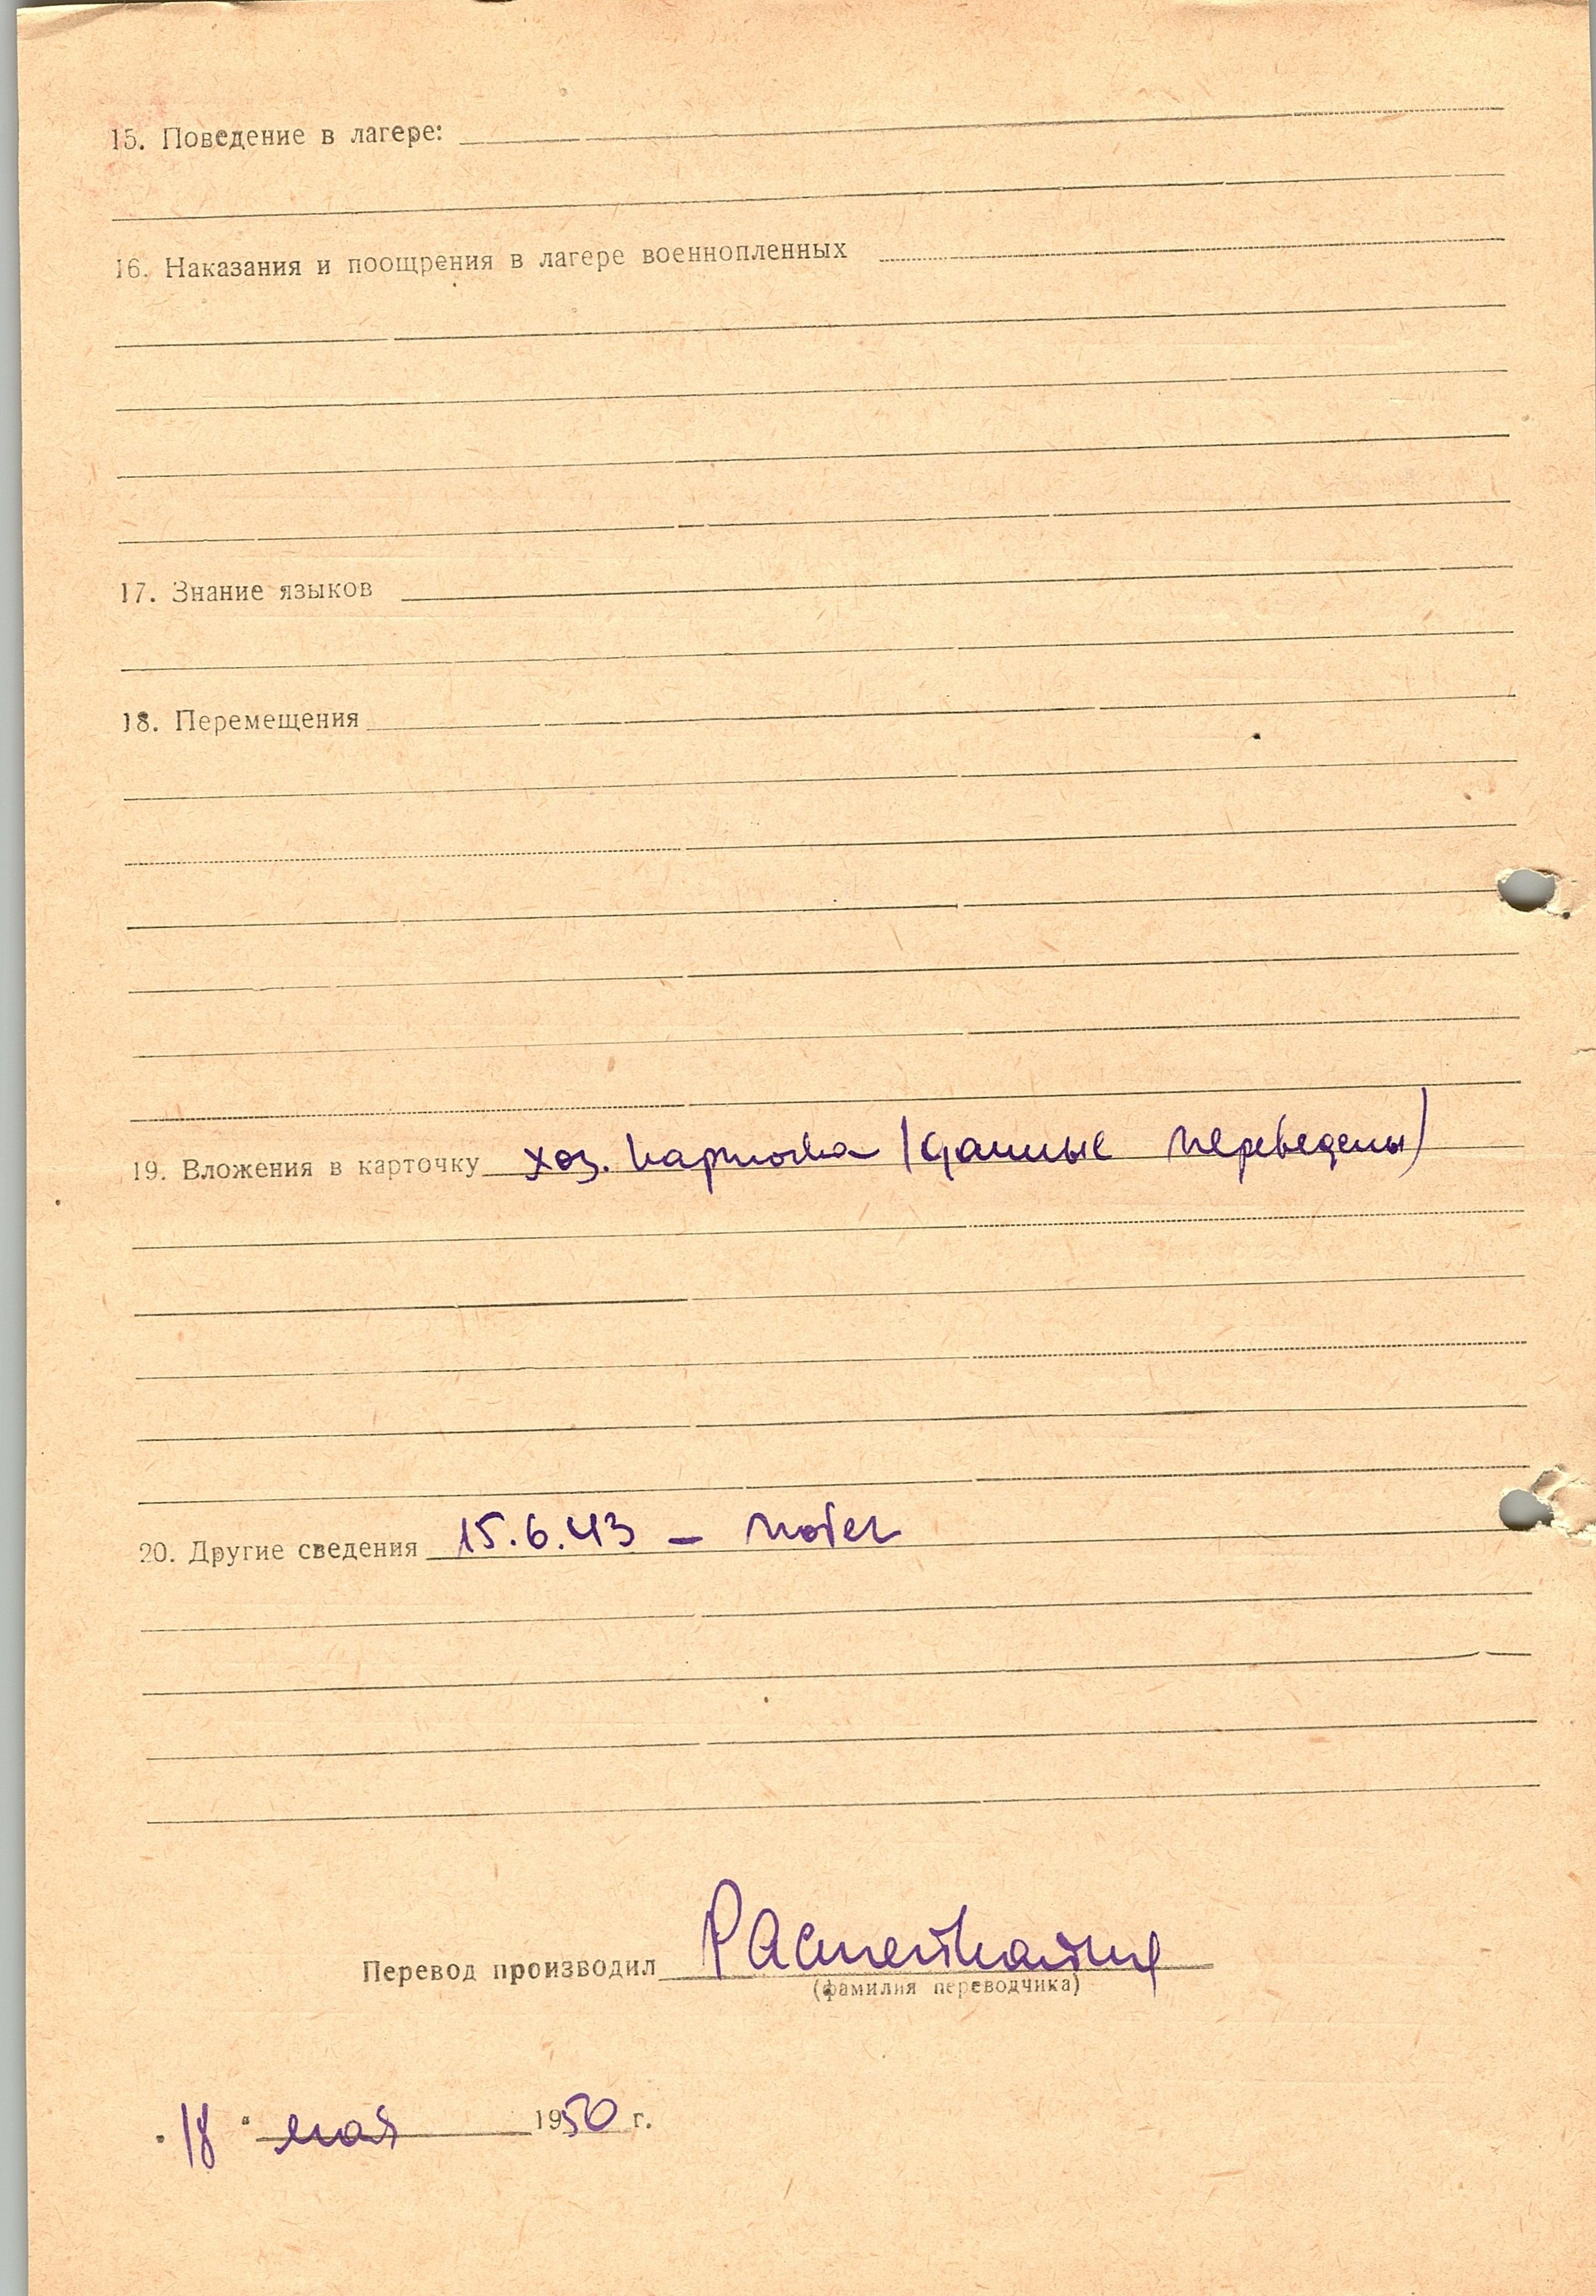 15. Поведение в лагере:
16. Наказания и поощрения в лагере военнопленных
17. Знание языков
18. Перемещения
19. Вложения в карточку хоз. карточка (данные переведены)
20. Другие сведения 15.6.43 – побег
Перевод производил
(фамилия переводчика)
"18" мая 1950 г.